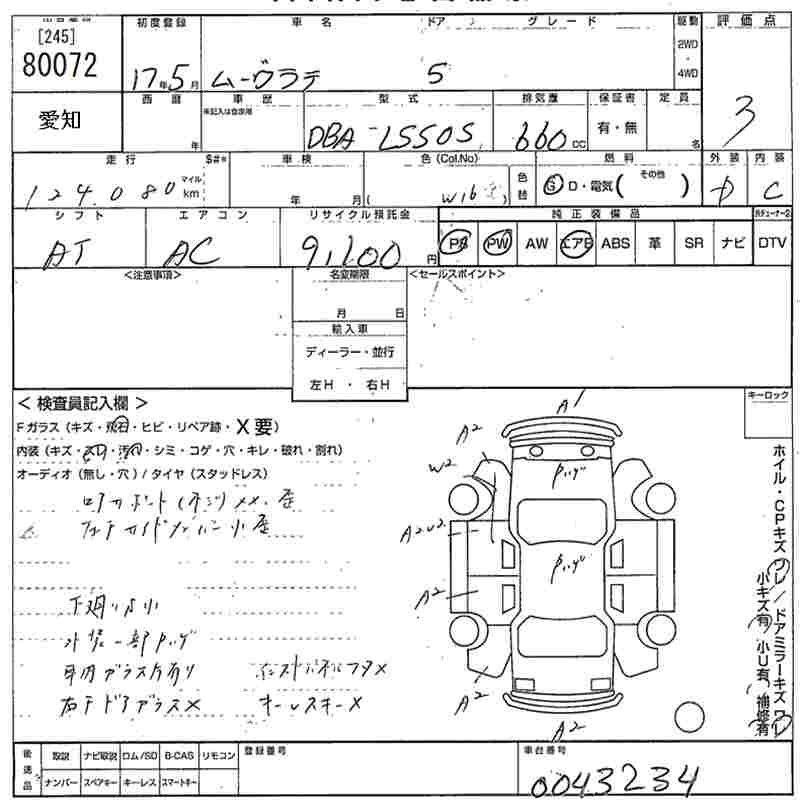 [245]
80072
愛知
初度登録 車名 ドア グレード 駆動 評価点
17年5月 ムーヴラテ 5 2WD・4WD 3
西暦 年 車歴 ※未記入は自家用 型式 排気量 保証書 定員
DBA-L550S 660 CC 有・無 名
走行 $#* 車検 色(Col.No) 燃料 外装 内装
124,080 マイル km 年 月( W16 ) 色替 G D・電気( その他 ) D C
シフト エアコン リサイクル預託金 純正装備品
AT AC 9,100円 PS PW AW エアB ABS 革 SR ナビ DTV
<注意事項> 名変期限 <セールスポイント>
月 日
輸入車
ディーラー・並行
左H ・ 右H
<検査員記入欄> キーロック
Fガラス(キズ・飛石・ヒビ・リペア跡・X要)
内装(キズ・スレ・汚れ・シミ・コゲ・穴・キレ・破れ・割れ)
オーディオ(無し・穴)/タイヤ(スタッドレス)
下廻りサ小
外装一部ハゲ
車内ガラス片有り インストパネルフタ×
右FドアガラスX キーレスキーX
A1
A2
W2 ハゲ
A2U2
ハゲ
A2
A2
A2
ホイル・CPキズワレ/ドアミラーキズワレ
小キズ有 小U有、補修有
後送品 取説 ナビ取説 ロム/SD B-CAS リモコン 登録番号 車台番号
ナンバー スペアキー キーレス スマートキー 0043234